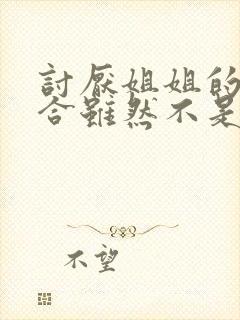 討厭姐姐的
合雖然不是
不望